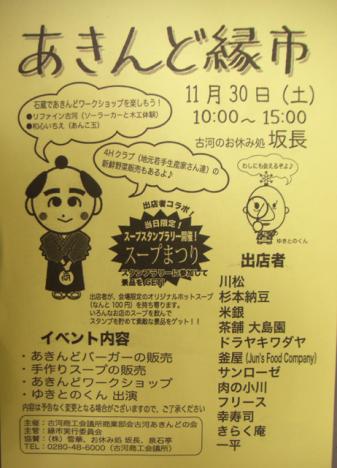 あきんど縁市
石蔵であきんどワークショップを楽しもう！
●リファイン古河（ソーラーカーと木工体験）
●和心いちえ（あんこ玉）
11月30日（土）
10:00〜15:00
古河のお休み処 坂長
4Hクラブ（地元若手生産家さん達）の
新鮮野菜販売もあるよ♪
わしにも会えるぞよ♪
ゆきとのくん
出店者コラボ！
当日限定！
スープスタンプラリー開催！
スープまつり
スタンプラリーに参加して
景品をGET!!
出店者が、会場限定のオリジナルホットスープ
（なんと100円）を持ち寄ります。
いろんなお店のスープを飲んで
スタンプを貯めて素敵な景品をゲット！！
出店者
川松
杉本納豆
米銀
茶舗 大島園
ドラヤキワダヤ
釜屋 (Jun's Food Company)
サンローゼ
肉の小川
フリース
幸寿司
きらく庵
一平
イベント内容
・あきんどバーガーの販売
・手作りスープの販売
・あきんどワークショップ
・ゆきとのくん 出演
内容は予告なく変更となる場合がございますので、ご了承ください
主催：古河商工会議所商業部会古河あきんどの会
主管：縁市実行委員会
協賛：（株）雪華、お休み処 坂長、泉石亭
TEL：0280-48-6000（古河商工会議所）